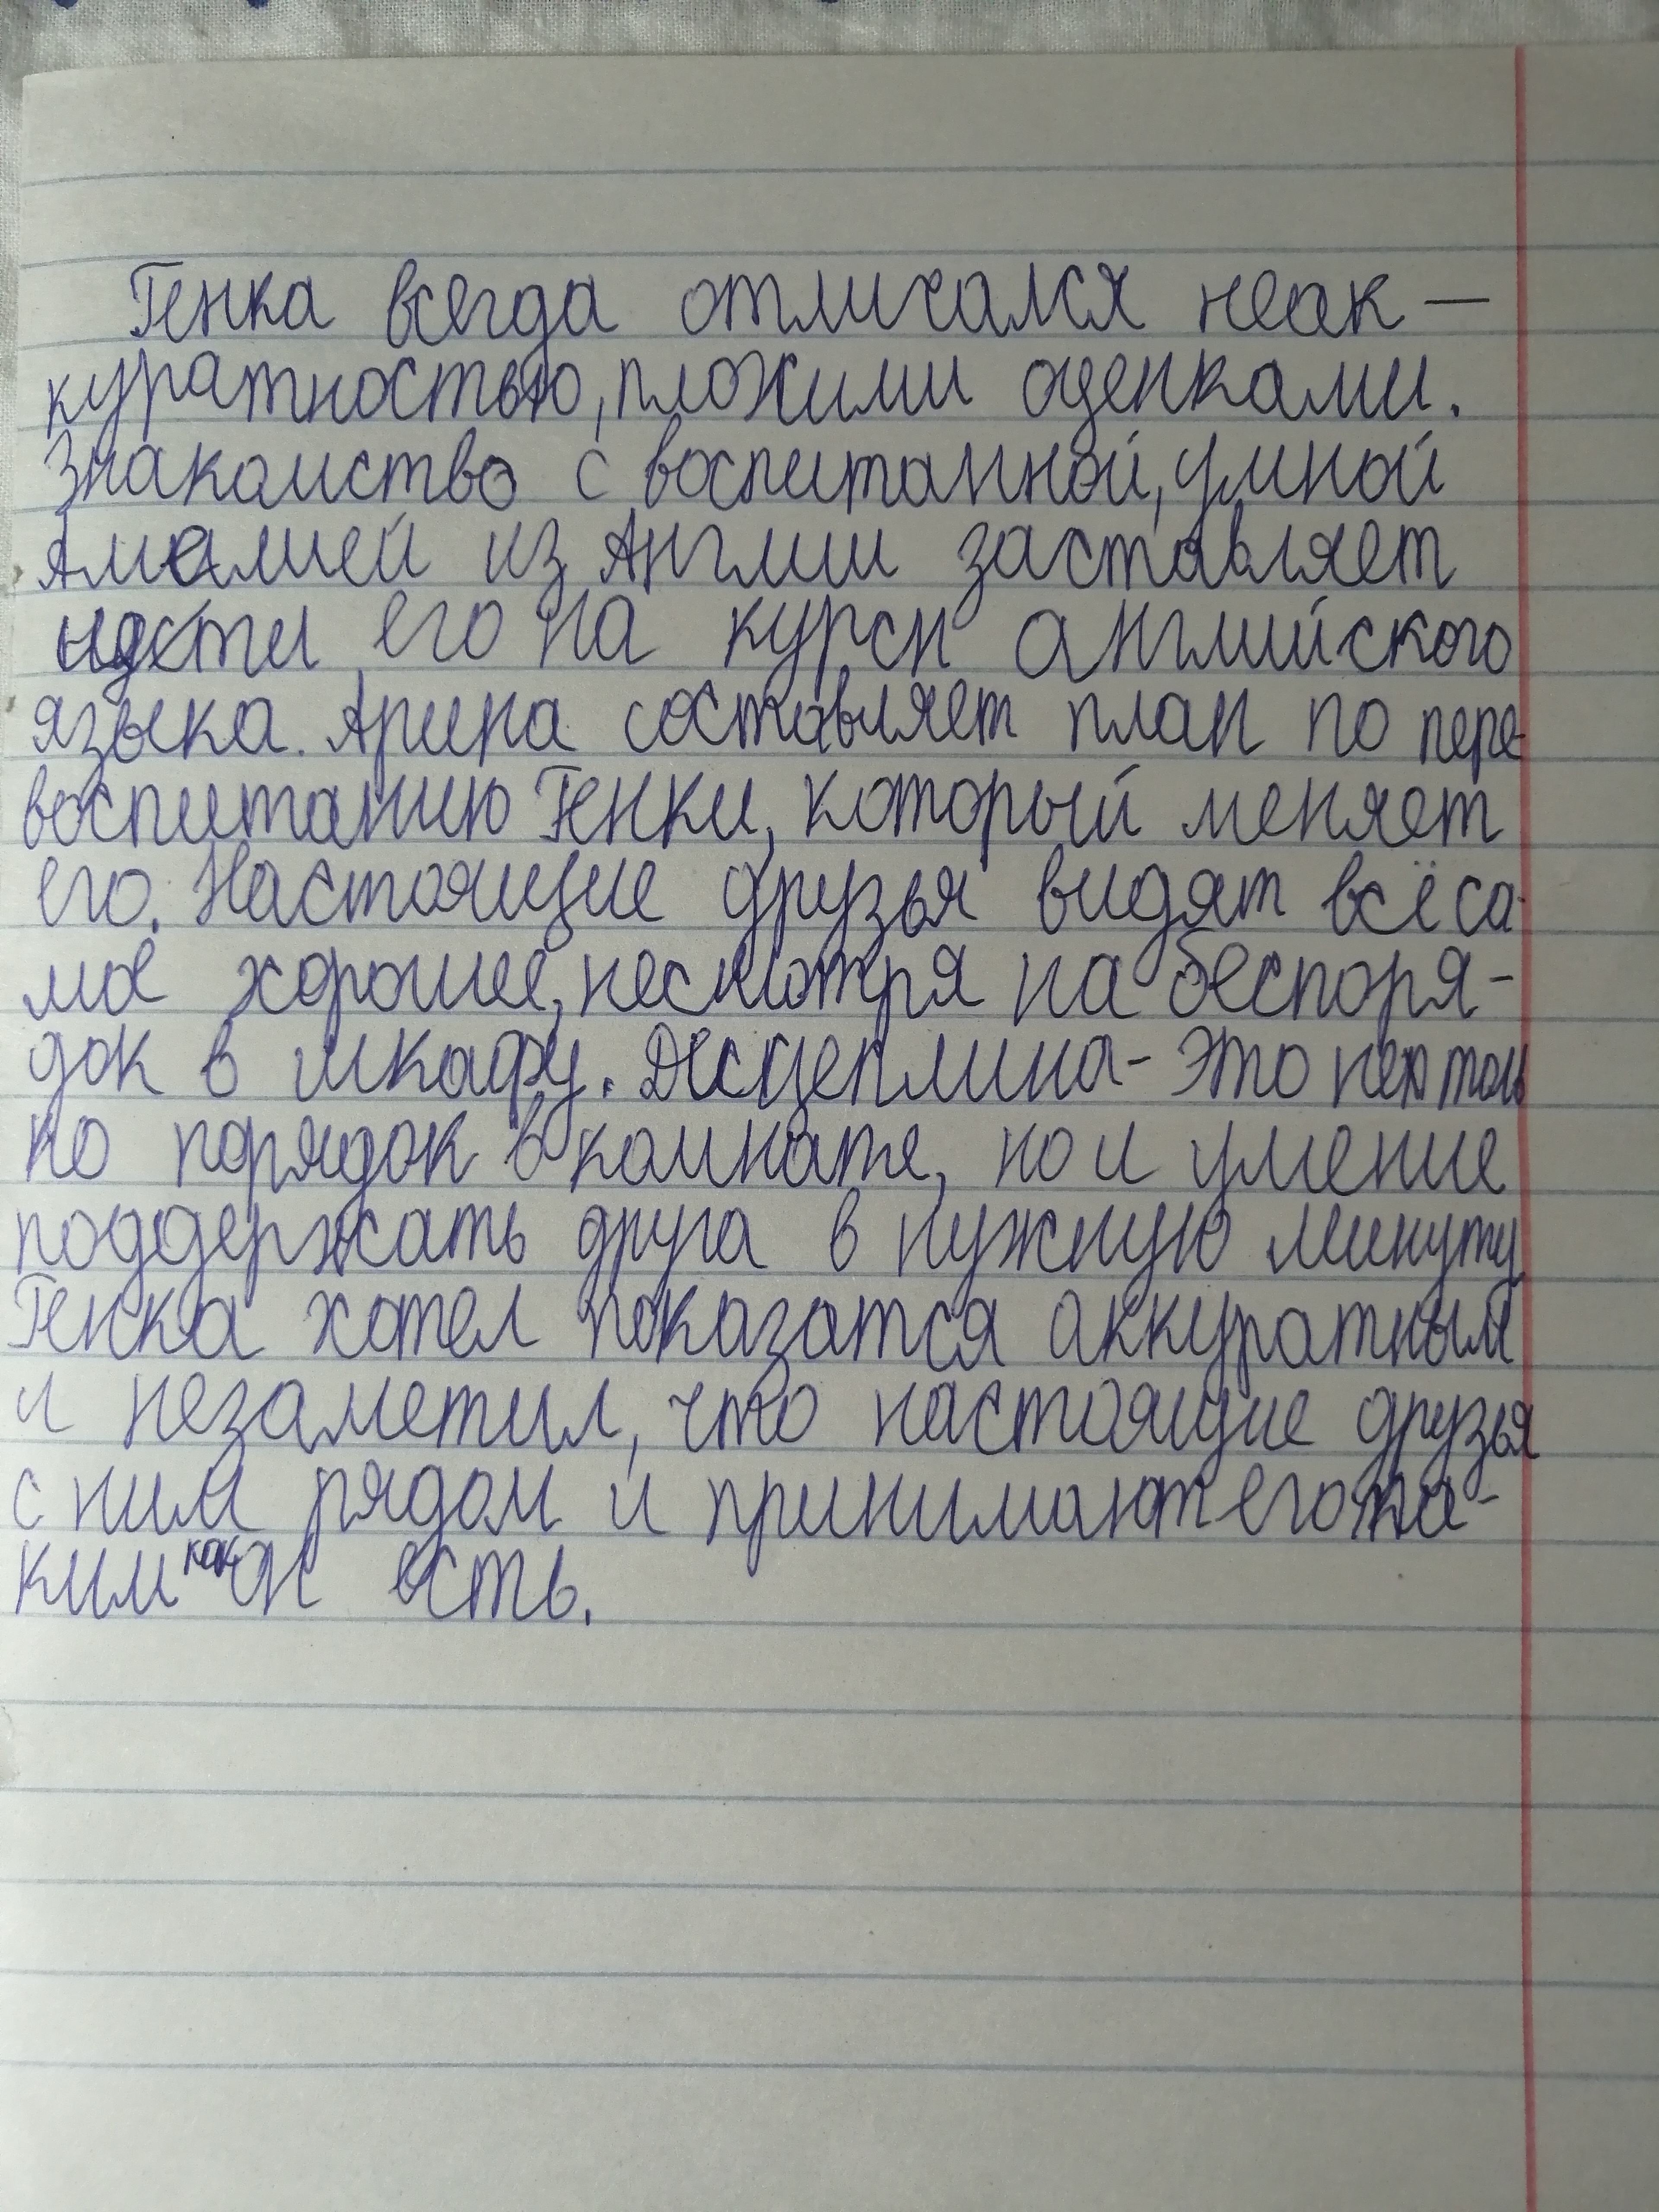 Генка всегда отличался неак-
куратностью, плохими оценками.
Знакомство с воспитанной, умной
Амалией из Англии заставляет
идти его на курсы английского
языка. Арина составляет план по пере-
воспитанию Генки, который меняет
его. Настоящие друзья видят всё са-
мое хорошее, несмотря на беспоря-
док в шкафу. Дисциплина - это не толь
ко порядок в комнате, но и умение
поддержать друга в нужную минуту
Генка хотел показатся аккуратным
и незаметил, что настоящие друзья
с ним рядом и принимают его та-
ким как он есть.